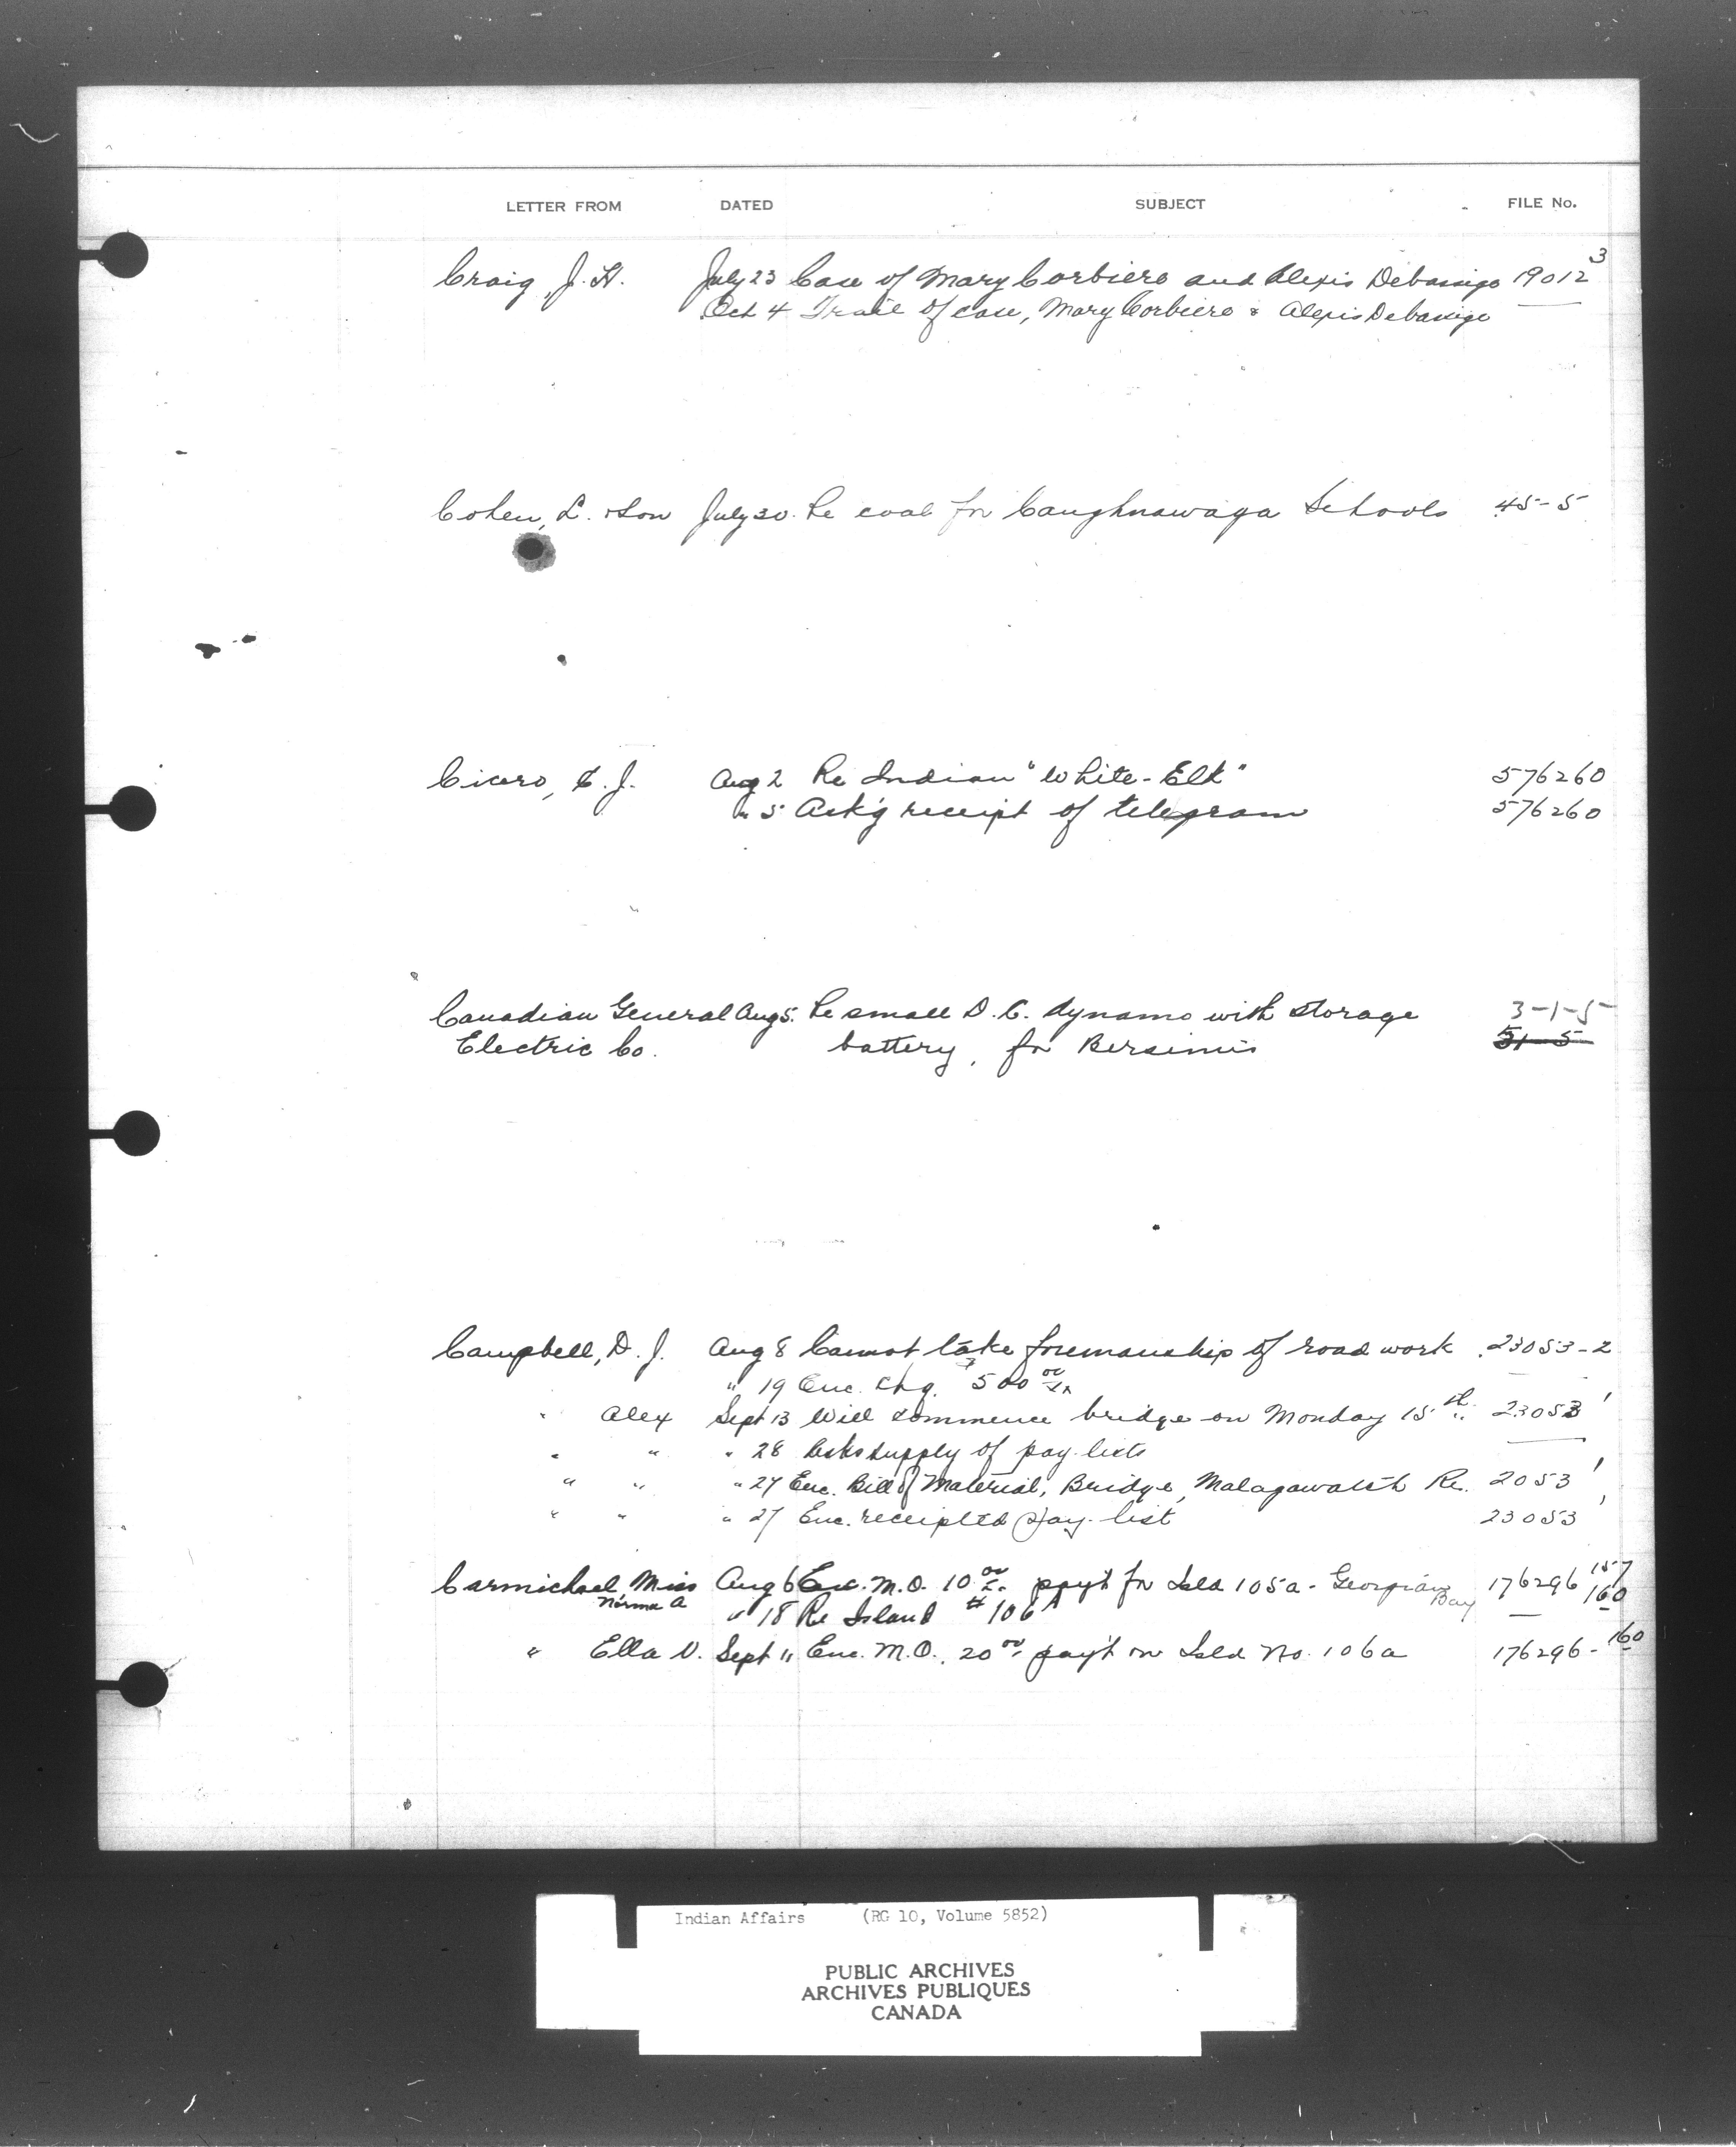 LETTER FROM DATED SUBJECT FILE No.
Craig, J. H. July 23 Case of Mary Corbiere and Alexis Debassige 19012 3
Oct 4 of case, Mary Corbiere & Alexis Debassige
Cohen, L. & Son July 30. Re coal for Caughnawaga Schools 45-5
Cicero, C. J. Aug 2 Re Indian "White-Elk" 576260
" 5 Ack'g receipt of telegram 576260
Canadian General Aug 5. Re small D.C. dynamo with storage 3-1-5
Electric Co. battery, for Bersimis 51-5
Campbell, D. J. Aug 8 Cannot take foremanship of road work 23053-2
" 19 Enc. chq. 500 00
" Alex Sept 13 Will commence bridge on Monday 15th 23053 1
" " " 28 Asks supply of pay-lists
" " " 27 Enc. Bill of Material, Bridge, Malagawatch Re. 2053 1
" " " 27 Enc. receipted pay-list 23053 1
Carmichael, Miss Aug 6 Enc. M.O. 10 00 pay't for Isld 105a - Georgian Bay 176296 157
Norma A " 18 Re Island # 106 A 160
" Ella V. Sept 11 Enc. M.O. 20 00 pay't on Isld No. 106a 176296-160
Indian Affairs (RG 10, Volume 5852)
PUBLIC ARCHIVES
ARCHIVES PUBLIQUES
CANADA